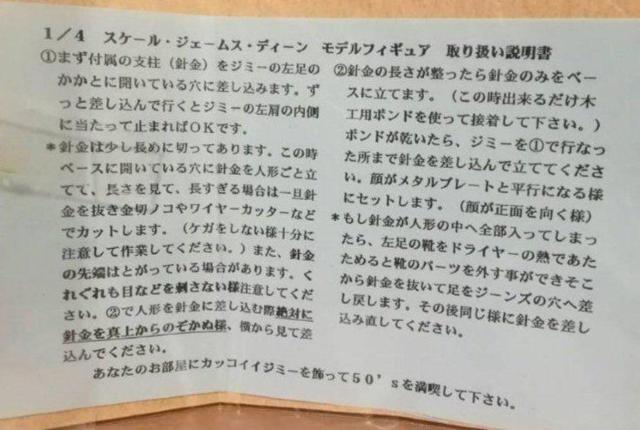 1/4 スケール・ジェームス・ディーン モデルフィギュア 取り扱い説明書
①まず付属の支柱(針金)をジミーの左足の
かかとに開いている穴に差し込みます。ず
っと差し込んで行くとジミーの左肩の内側
に当たって止まればOKです。
*針金は少し長めに切ってあります。この時
ベースに開いている穴に針金を人形ごと立
てて、長さを見て、長すぎる場合は一旦針
金を抜き金切ノコやワイヤーカッターなど
でカットします。(ケガをしない様十分に
注意して作業してください。)また、針金
の先端はとがっている場合があります。く
れぐれも目などを刺さない様注意してくだ
さい。②で人形を針金に差し込む際絶対に
針金を真上からのぞかぬ様、横から見て差
込んでください。
②針金の長さが整ったら針金のみをベー
スに立てます。(この時出来るだけ木
工用ボンドを使って接着して下さい。)
ボンドが乾いたら、ジミーを①で行なっ
た所まで針金を差し込んで立ててくださ
い。顔がメタルプレートと平行になる様
にセットします。(顔が正面を向く様)
*もし針金が人形の中へ全部入ってしまっ
たら、左足の靴をドライヤーの熱であた
ためると靴のパーツを外す事ができそこ
から針金を抜いて足をジーンズの穴へ差
し戻します。その後同じ様に針金を差し
込み直してください。
あなたのお部屋にカッコイイジミーを飾って50'sを満喫して下さい。